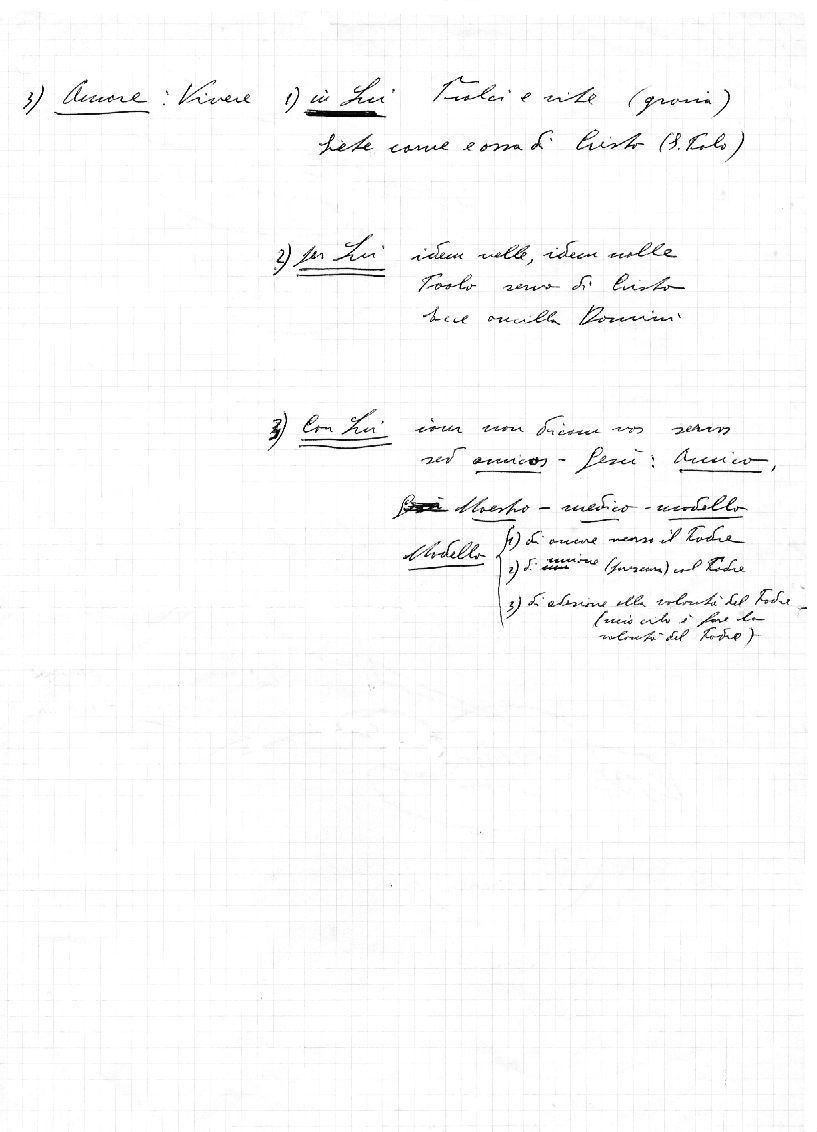 3) Amore : Vivere 1) in Lui Tralci e vite (grazia)
Siete carne e ossa di Cristo (S. Paolo)
2) per Lui idem velle, idem nolle
Paolo servo di Cristo
Ecce ancilla Domini
3) Con Lui iam non dicam vos servos
sed amicos - Gesù : Amico,
Maestro - medico - modello
Modello 1) di amore verso il Padre
2) di unione (preghiera) col Padre
3) di adesione alla volontà del Padre -
(mio cibo è fare la
volontà del Padre)